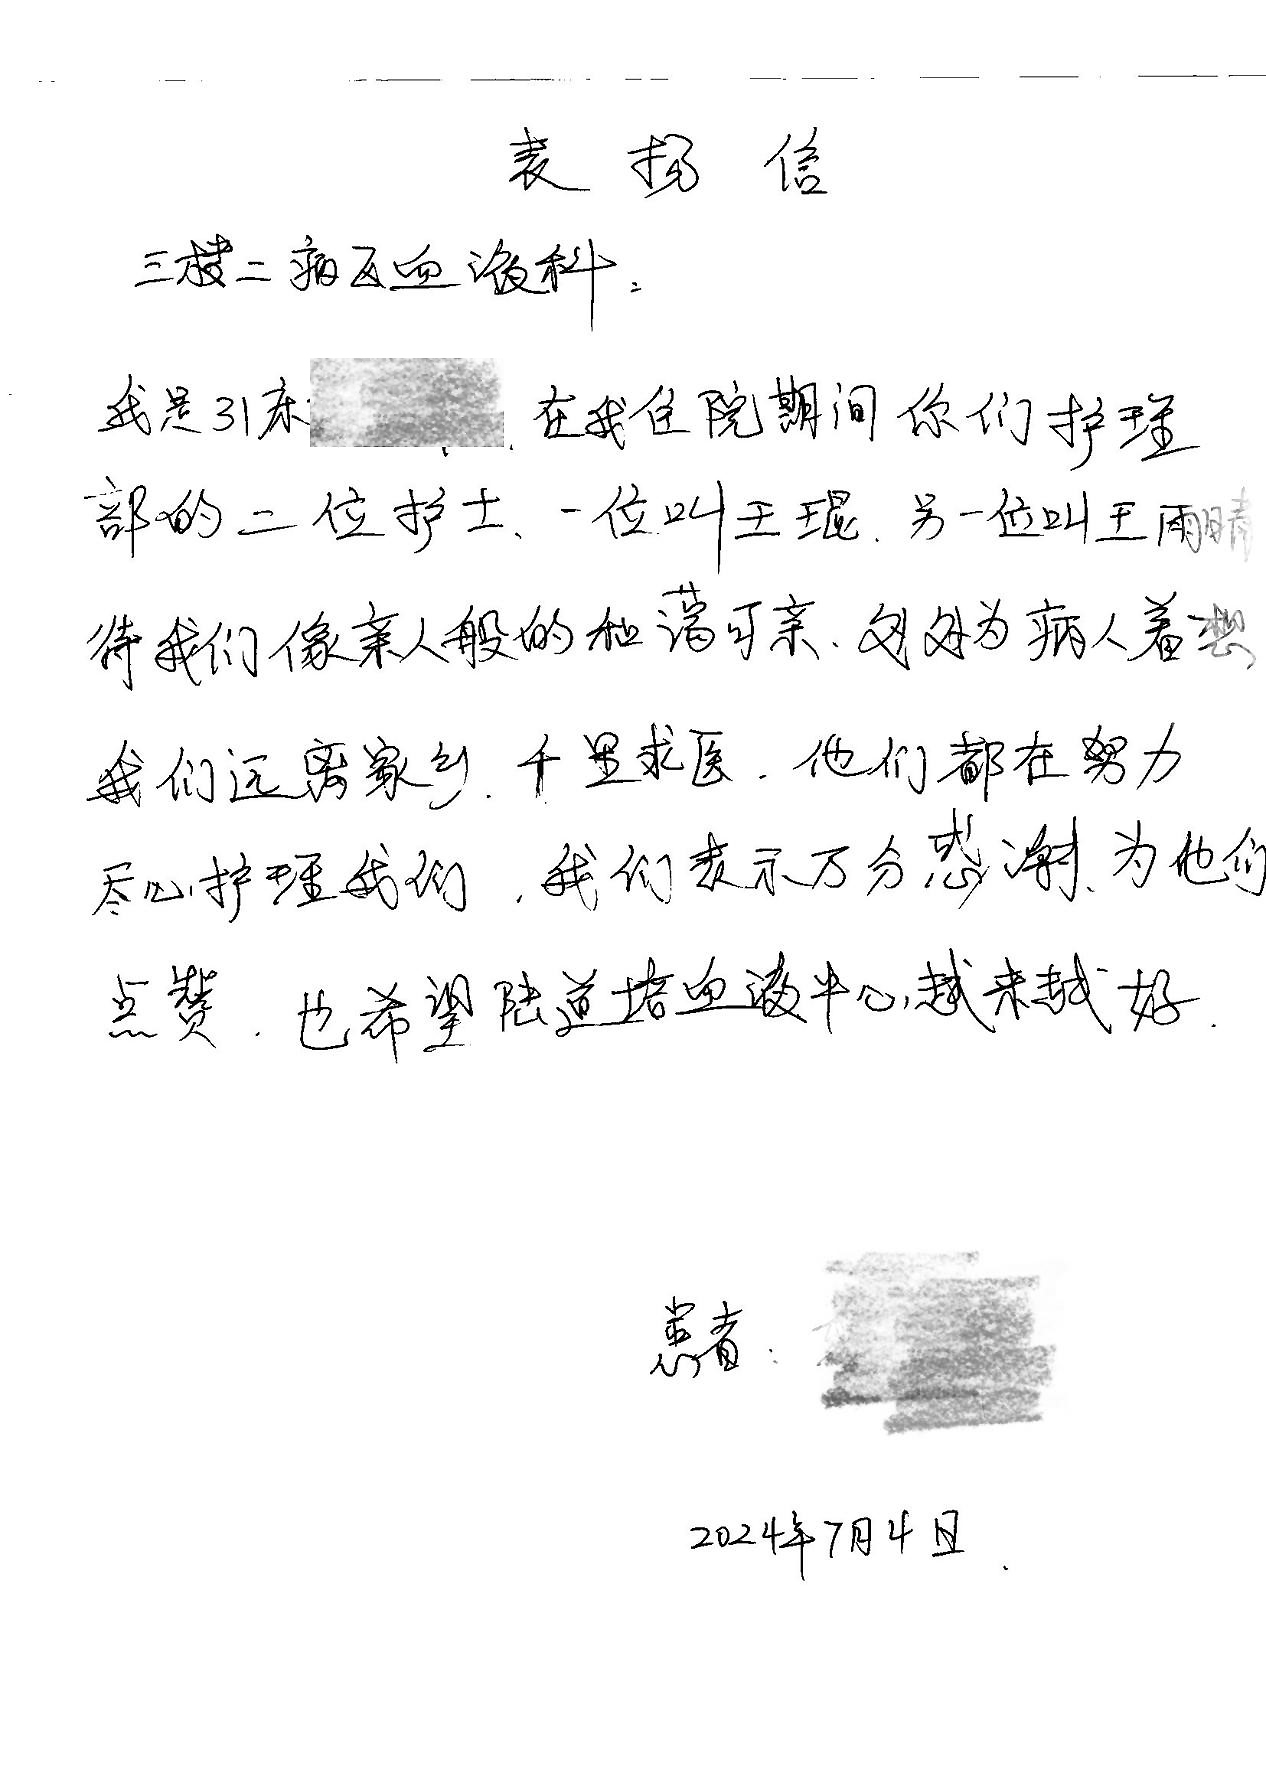 表扬信
三楼二病区血液科:
我是31床 在我住院期间你们护理
部的二位护士、一位叫王琨.另一位叫王雨晴
待我们像亲人般的和蔼可亲、处处为病人着想
我们远离家乡.千里求医.他们都在努力
尽心护理我们,我们表示万分感谢、为他们
点赞.也希望陆道培血液中心越来越好.
患者:
2024年7月4日.